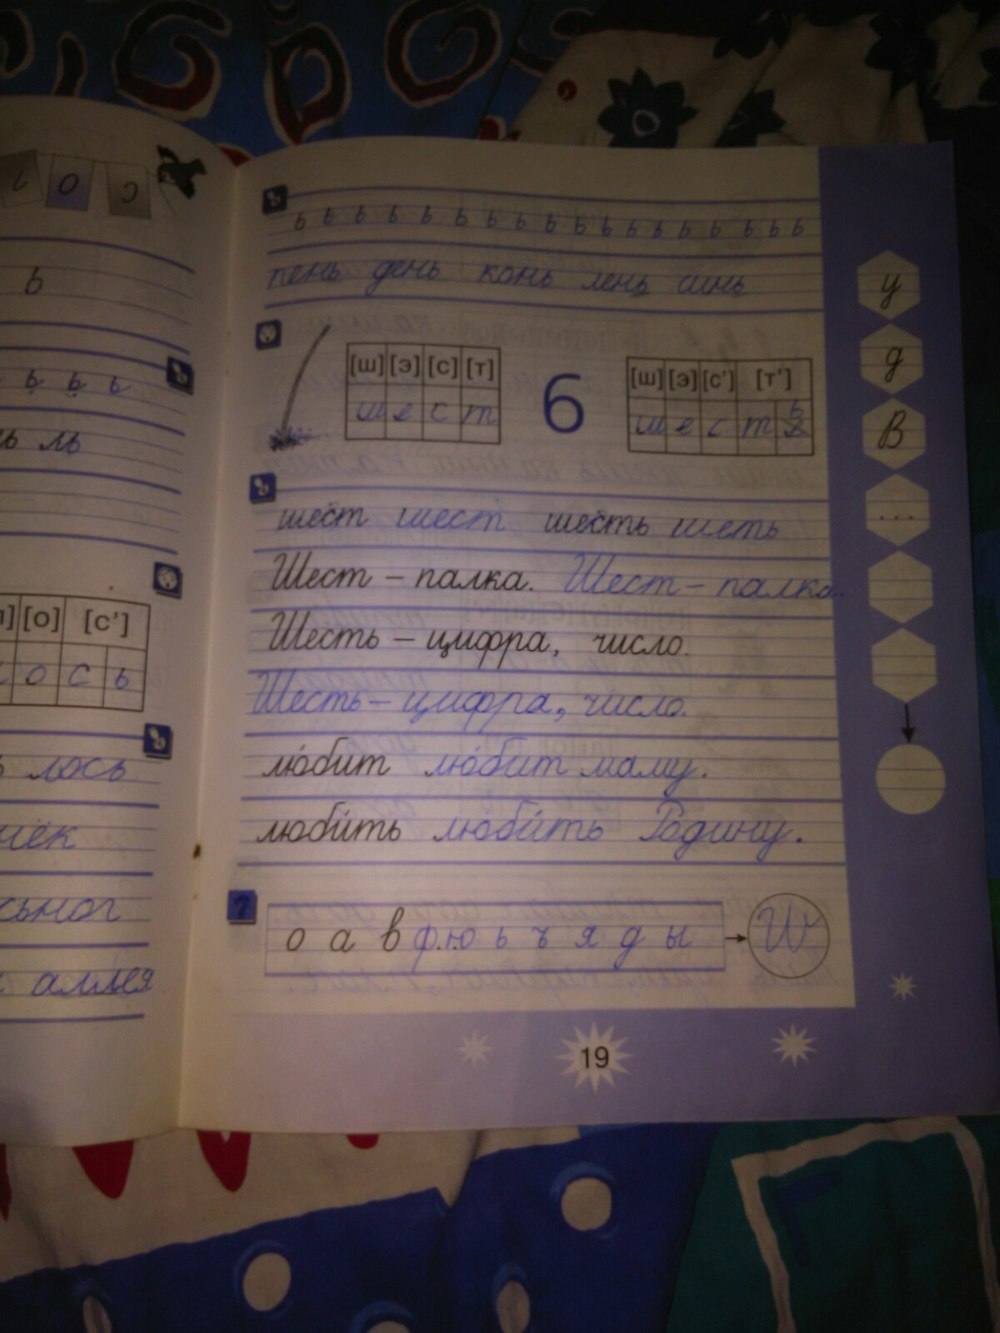 с о
ь ь ь ь ь ь ь ь ь ь ь ь ь ь ь ь ь ь
ь
пень день конь лень синь
[ш] [э] [с] [т]
ш е с т
6
[ш] [э] [с'] [т']
ш е с т ь
ь ь ь ь
ль
шест шест шесть шесть
Шест – палка. Шест – палка.
Шесть – цифра, число.
Шесть – цифра, число.
[о] [с']
о с ь
лось
любит любит маму.
любить любить Родину.
о а в ф ю ь ъ я д ы
Ш
аллея
у
д
В
...
19